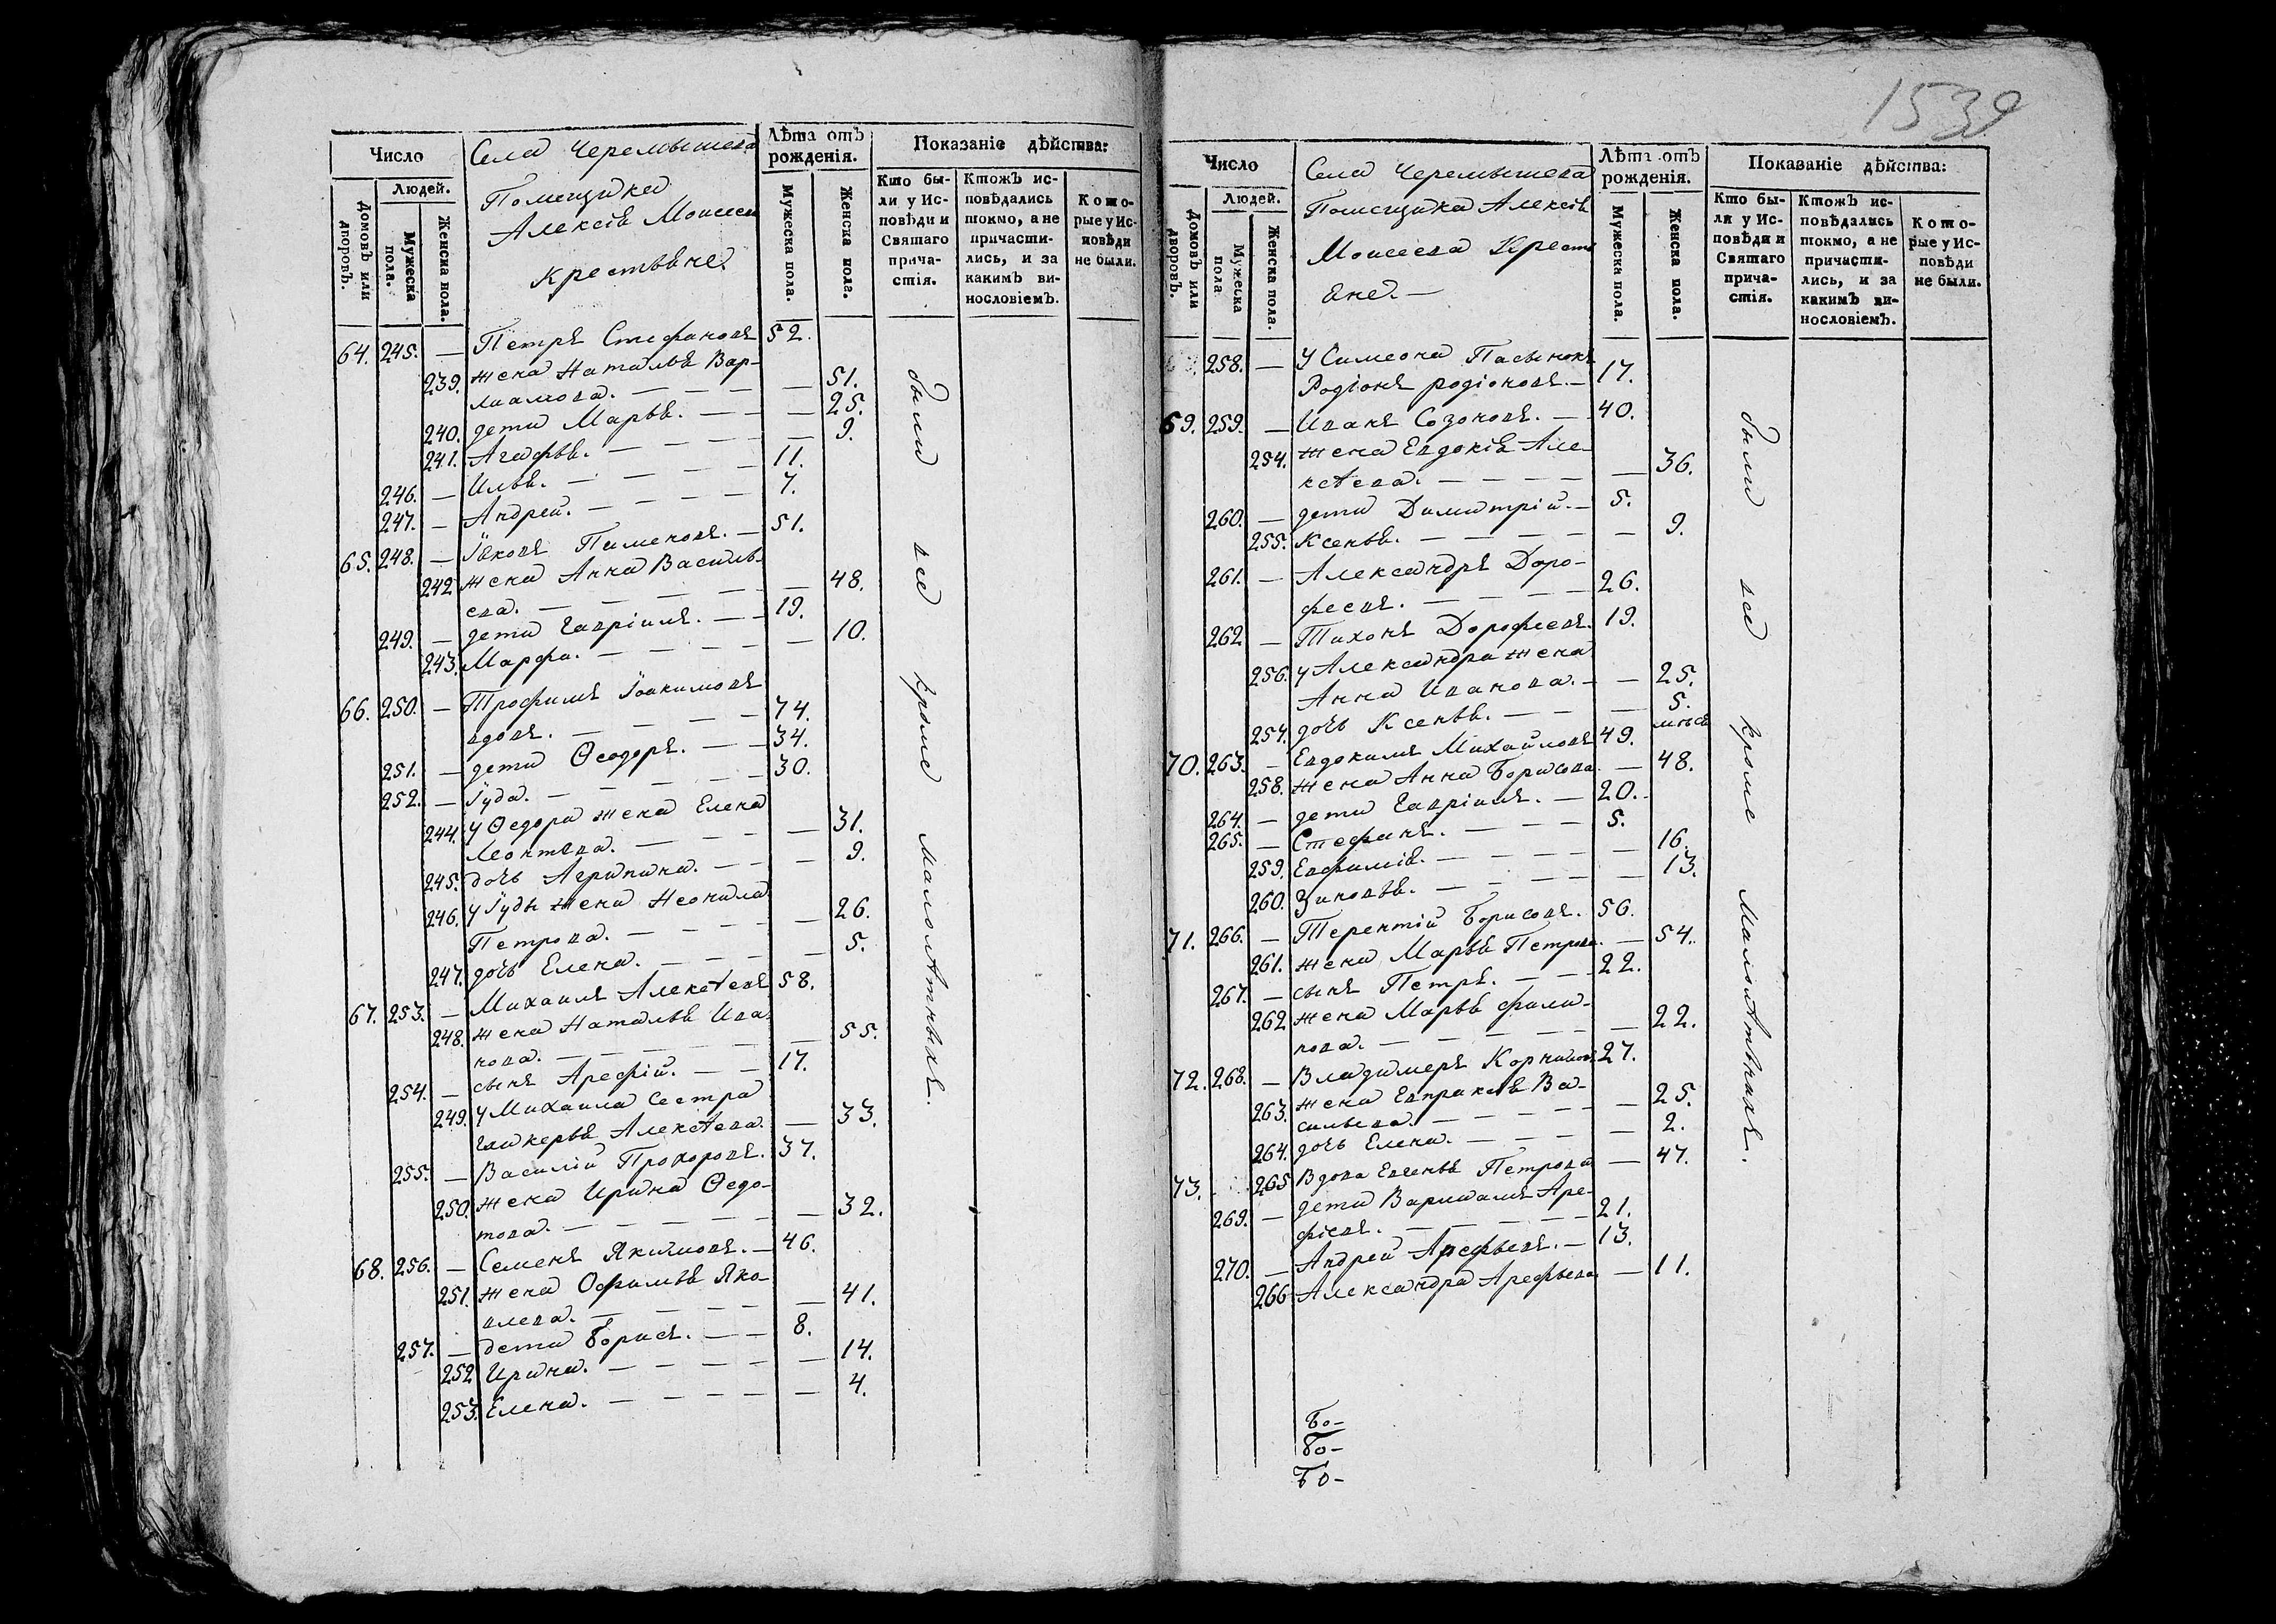 1539
Число
Людей.
Домовъ или дворовъ.
Мужеска пола.
Женска пола.
Села Черемышева
Помещика
Алексѣя Моисеев
Крестьяне.
Лѣта отъ рожденія.
Мужеска пола.
Женска пола.
Показаніе дѣйства:
Кто бы-
ли у Ис-
повѣди и
Святаго
прича-
стія.
Ктожъ ис-
повѣдались
токмо, а не
причасти-
лись, и за
какимъ ви-
нословіемъ.
Кото-
рые у Ис-
повѣди
не были.
64. 245. — Петръ Стефановъ 52.
239. жена Наталья Вар-
лаамова. — — — — 51.
240. дети Марья. — — — 25.
241. Агафья. — — — — 9.
246. — Илья. — — — — 11.
247. — Андрей. — — — — 7.
65. 248. — Іаковъ Пименовъ. — 51.
242 жена Анна Василь-
ева. — — — — — 48.
249. — дети Гавріилъ. — — 19.
243. Марфа. — — — — — 10.
66. 250. — Трофимъ Іоакимовъ
вдовъ. — — — — 74.
251. — дети Ѳеодоръ. — — 34.
252. — Іуда. — — — — 30.
244. у Ѳедора жена Елена
Леонтьева. — — — — 31.
245. дочь Агрипина. — — — 9.
246. у Іуды жена Неонила
Петрова. — — — — 26.
247. дочь Елена. — — — — 5.
67. 253. — Михаилъ Алексѣевъ 58.
248. жена Наталья Ива-
нова. — — — — — 55.
254. — сынъ Арефій. — — 17.
249. у Михаила сестра
Гликерья Алексѣева. — 33.
255. — Василій Прохоровъ. 37.
250. жена Ирина Ѳедо-
това. — — — — — 32.
68. 256. — Семенъ Якимовъ. — 46.
251. жена Офимья Яко-
влева. — — — — — 41.
257. — дети Борисъ. — — 8.
252 Ирина. — — — — — 14.
253. Елена. — — — — — 4.
были все кроме малолѣтныхъ.
Число
Людей.
Домовъ или дворовъ.
Мужеска пола
Женска пола.
Села Черемышева
Помещика Алексѣя
Моисеева Кресть
яне. —
Лѣта отъ рожденія.
Мужеска пола.
Женска пола.
Показаніе дѣйства:
Кто бы-
ли у Ис-
повѣди и
Святаго
прича-
стія.
Ктожъ ис-
повѣдались
токмо, а не
причасти-
лись, и за
какимъ ви-
нословіемъ.
Кото-
рые у Ис-
повѣди
не были.
258. — У Симеона Пасынокъ
Родіонъ родіоновъ. — 17.
69. 259. — Иванъ Созоновъ. — 40.
254. жена Евдокія Але-
ксѣева. — — — — — 36.
260. — дети Димитрій. — 5.
255. Ксенья. — — — — — 9.
261. — Александръ Доро-
феевъ. — — — — 26.
262 — Тихонъ Дорофеевъ. 19.
256. у Александра жена
Анна Иванова. — — 25.
257. дочь Ксенья. — — — — 5. мѣся
70. 263. — Евдокимъ Михайловъ 49.
258. жена Анна Борисова. — 48.
264. — дети Гавріилъ. — 20.
265. — Стефанъ. — — — 5.
259. Евфимія. — — — — — 16.
260. Зиновья. — — — — — 13.
71. 266. — Терентій Борисовъ. 56.
261. жена Марья Петрова. — 54.
267. — сынъ Петръ. — — 22.
262 жена Марья фили-
пова. — — — — — 22.
72. 268. — Владимеръ Корниловъ 27.
263. жена Евпраксья Ва-
сильева. — — — — — 25.
264. дочь Елена. — — — — 2.
73. 265 Вдова Евгенья Петрова — 47.
269. — дети Варлаамъ Аре-
фіевъ. — — — — — 21.
270. — Андрей Арефьевъ. — 13.
266 Александра Арефьева — 11.
были все кроме малолѣтныхъ.
Бо-
Бо-
Бо-